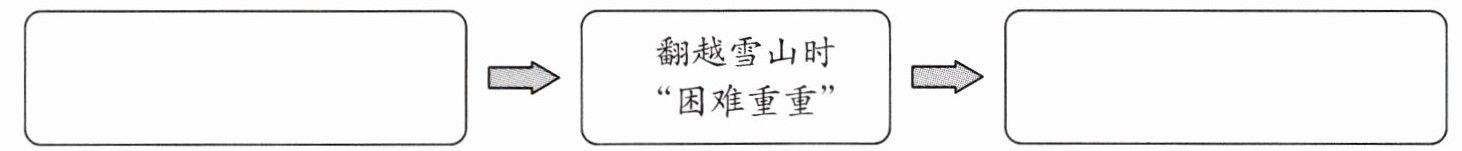 翻越雪山时
“困难重重”